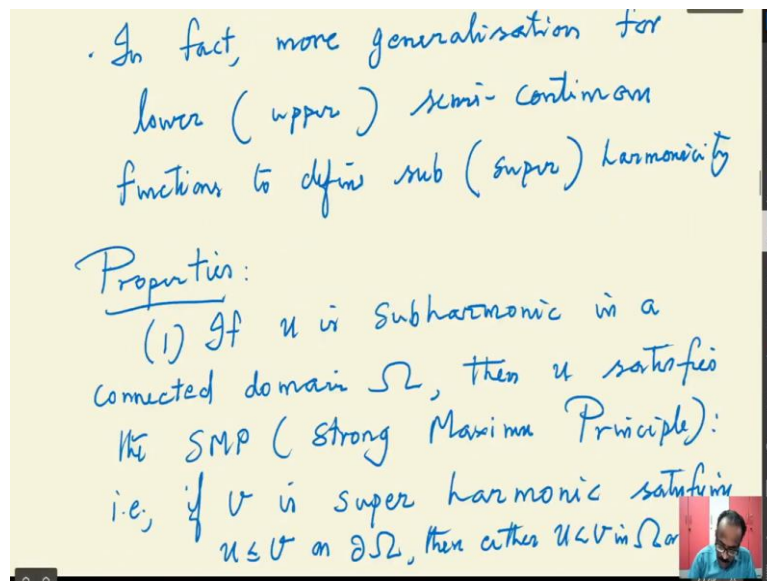 . In fact, more generalisation for
lower (upper) semi-continuous
functions to define sub (super) harmonicity
Properties:
(1) If u is subharmonic in a
connected domain Ω, then u satisfies
the SMP (Strong Maximum Principle):
i.e., if v is super harmonic satisfying
u ≤ v on ∂Ω, then either u < v in Ω or